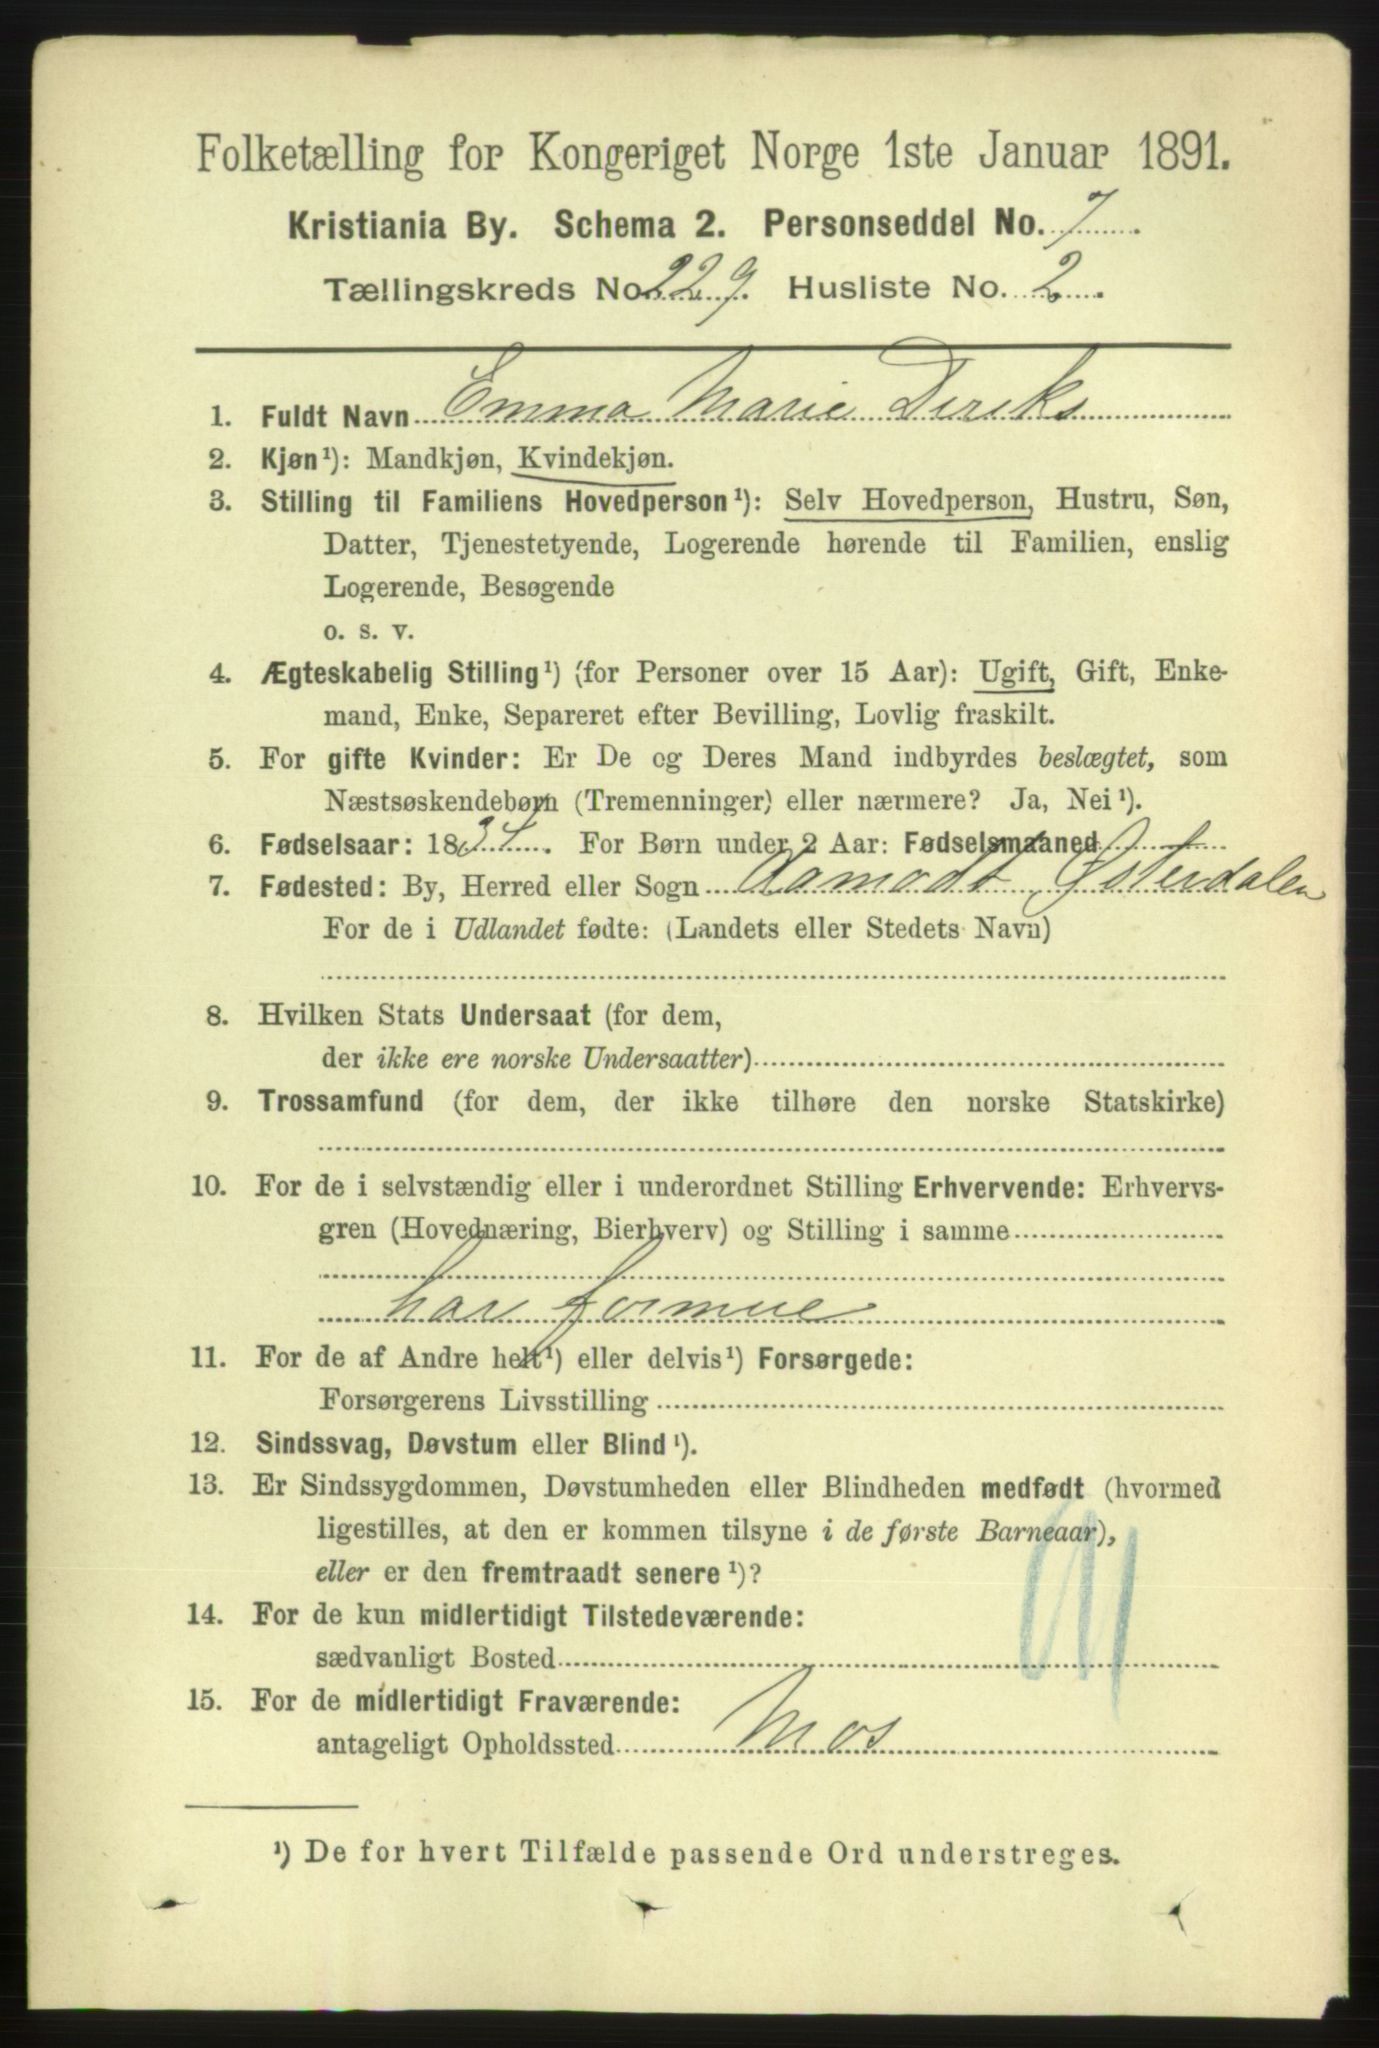 Folketælling for Kongeriget Norge 1ste Januar 1891.
Kristiania By. Schema 2. Personseddel No. 7
Tællingskreds No. 229. Husliste No. 2.
1. Fuldt Navn Emma Marie Dircks
2. Kjøn¹): Mandkjøn, Kvindekjøn.
3. Stilling til Familiens Hovedperson¹): Selv Hovedperson, Hustru, Søn,
Datter, Tjenestetyende, Logerende hørende til Familien, enslig
Logerende, Besøgende
o. s. v.
4. Ægteskabelig Stilling¹) (for Personer over 15 Aar): Ugift, Gift, Enke-
mand, Enke, Separeret efter Bevilling, Lovlig fraskilt.
5. For gifte Kvinder: Er De og Deres Mand indbyrdes beslægtet, som
Næstsøskendebørn (Tremenninger) eller nærmere? Ja, Nei¹).
6. Fødselsaar: 1834. For Børn under 2 Aar: Fødselsmaaned
7. Fødested: By, Herred eller Sogn Aamodt Østerdalen
For de i Udlandet fødte: (Landets eller Stedets Navn)
8. Hvilken Stats Undersaat (for dem,
der ikke ere norske Undersaatter)
9. Trossamfund (for dem, der ikke tilhøre den norske Statskirke)
10. For de i selvstændig eller i underordnet Stilling Erhvervende: Erhvervs-
gren (Hovednæring, Bierhverv) og Stilling i samme
har formue
11. For de af Andre helt¹) eller delvis¹) Forsørgede:
Forsørgerens Livsstilling
12. Sindssvag, Døvstum eller Blind¹).
13. Er Sindssygdommen, Døvstumheden eller Blindheden medfødt (hvormed
ligestilles, at den er kommen tilsyne i de første Barneaar),
eller er den fremtraadt senere¹)?
14. For de kun midlertidigt Tilstedeværende:
sædvanligt Bosted
15. For de midlertidigt Fraværende:
antageligt Opholdssted Mos
¹) De for hvert Tilfælde passende Ord understreges.